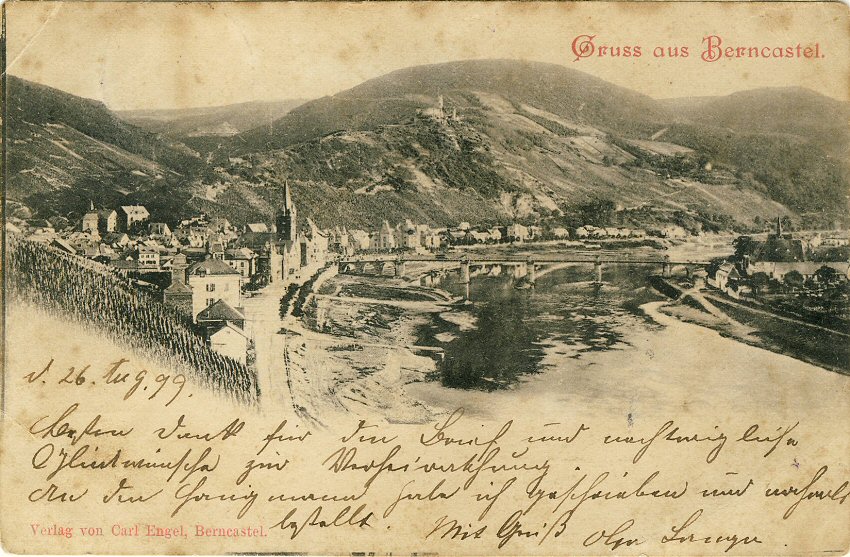 Gruss aus Berncastel.
d. 26. Aug. 99.
Besten Dank für den Brief und nachträgliche
Glückwünsche zur Verheirathung.
An den habe ich geschrieben und
bestellt. Mit Gruß
Verlag von Carl Engel, Berncastel.